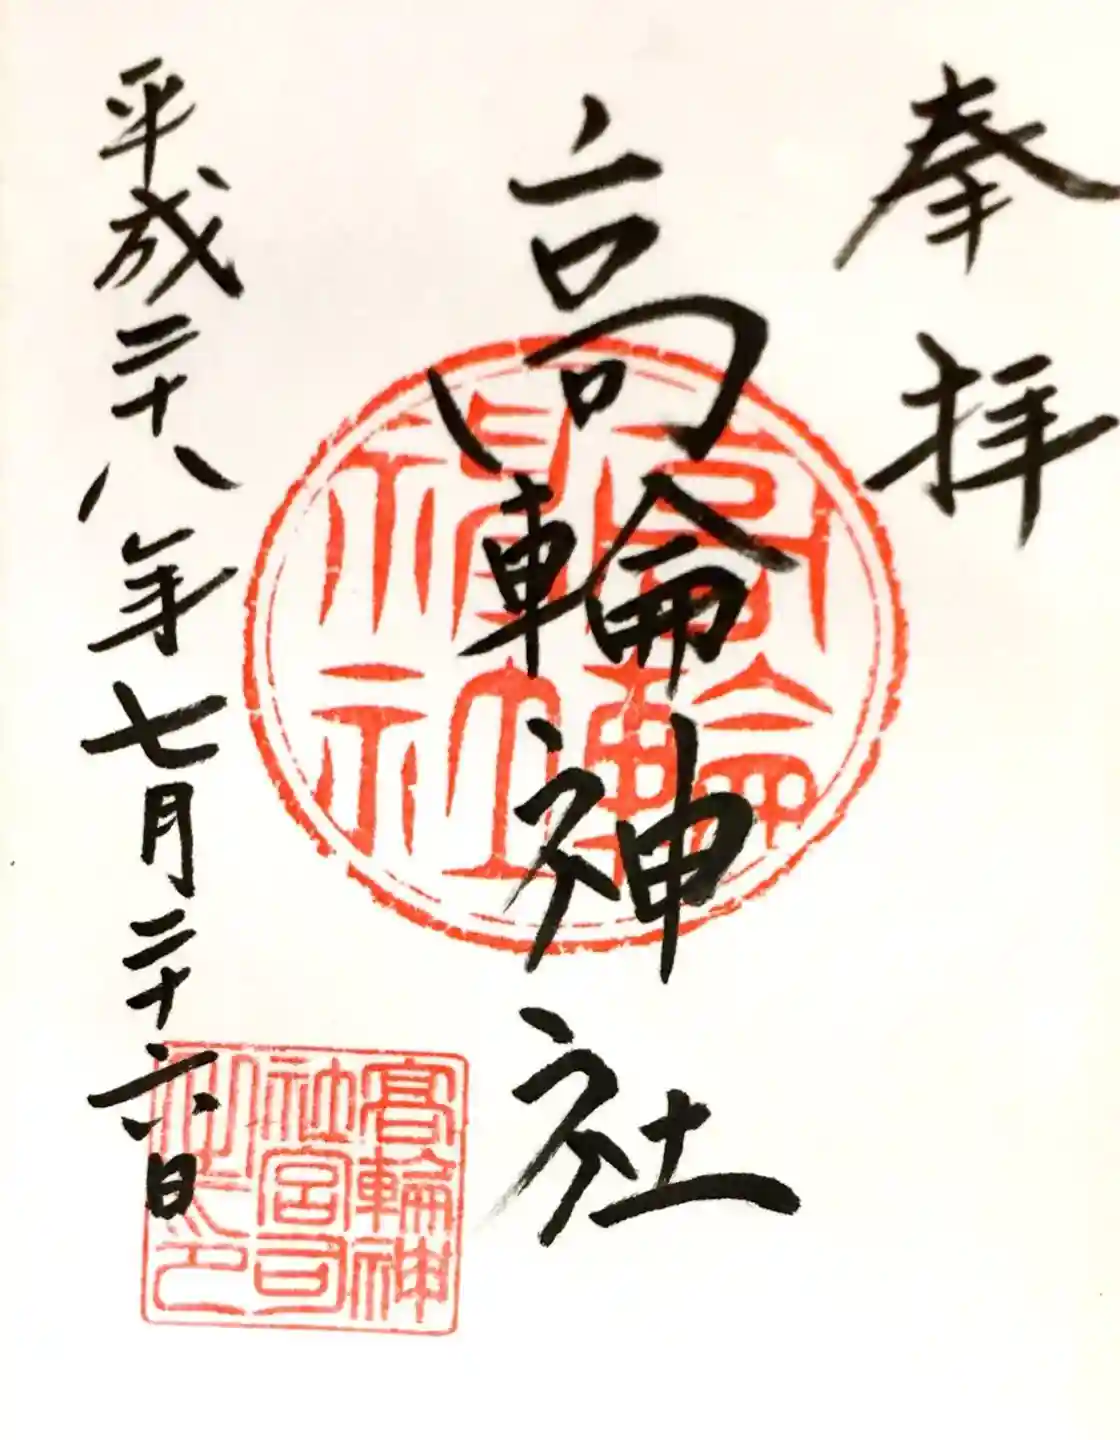 奉拝
高輪神社
平成二十八年七月二十六日
高輪
神社
高輪神
社宮司
之印